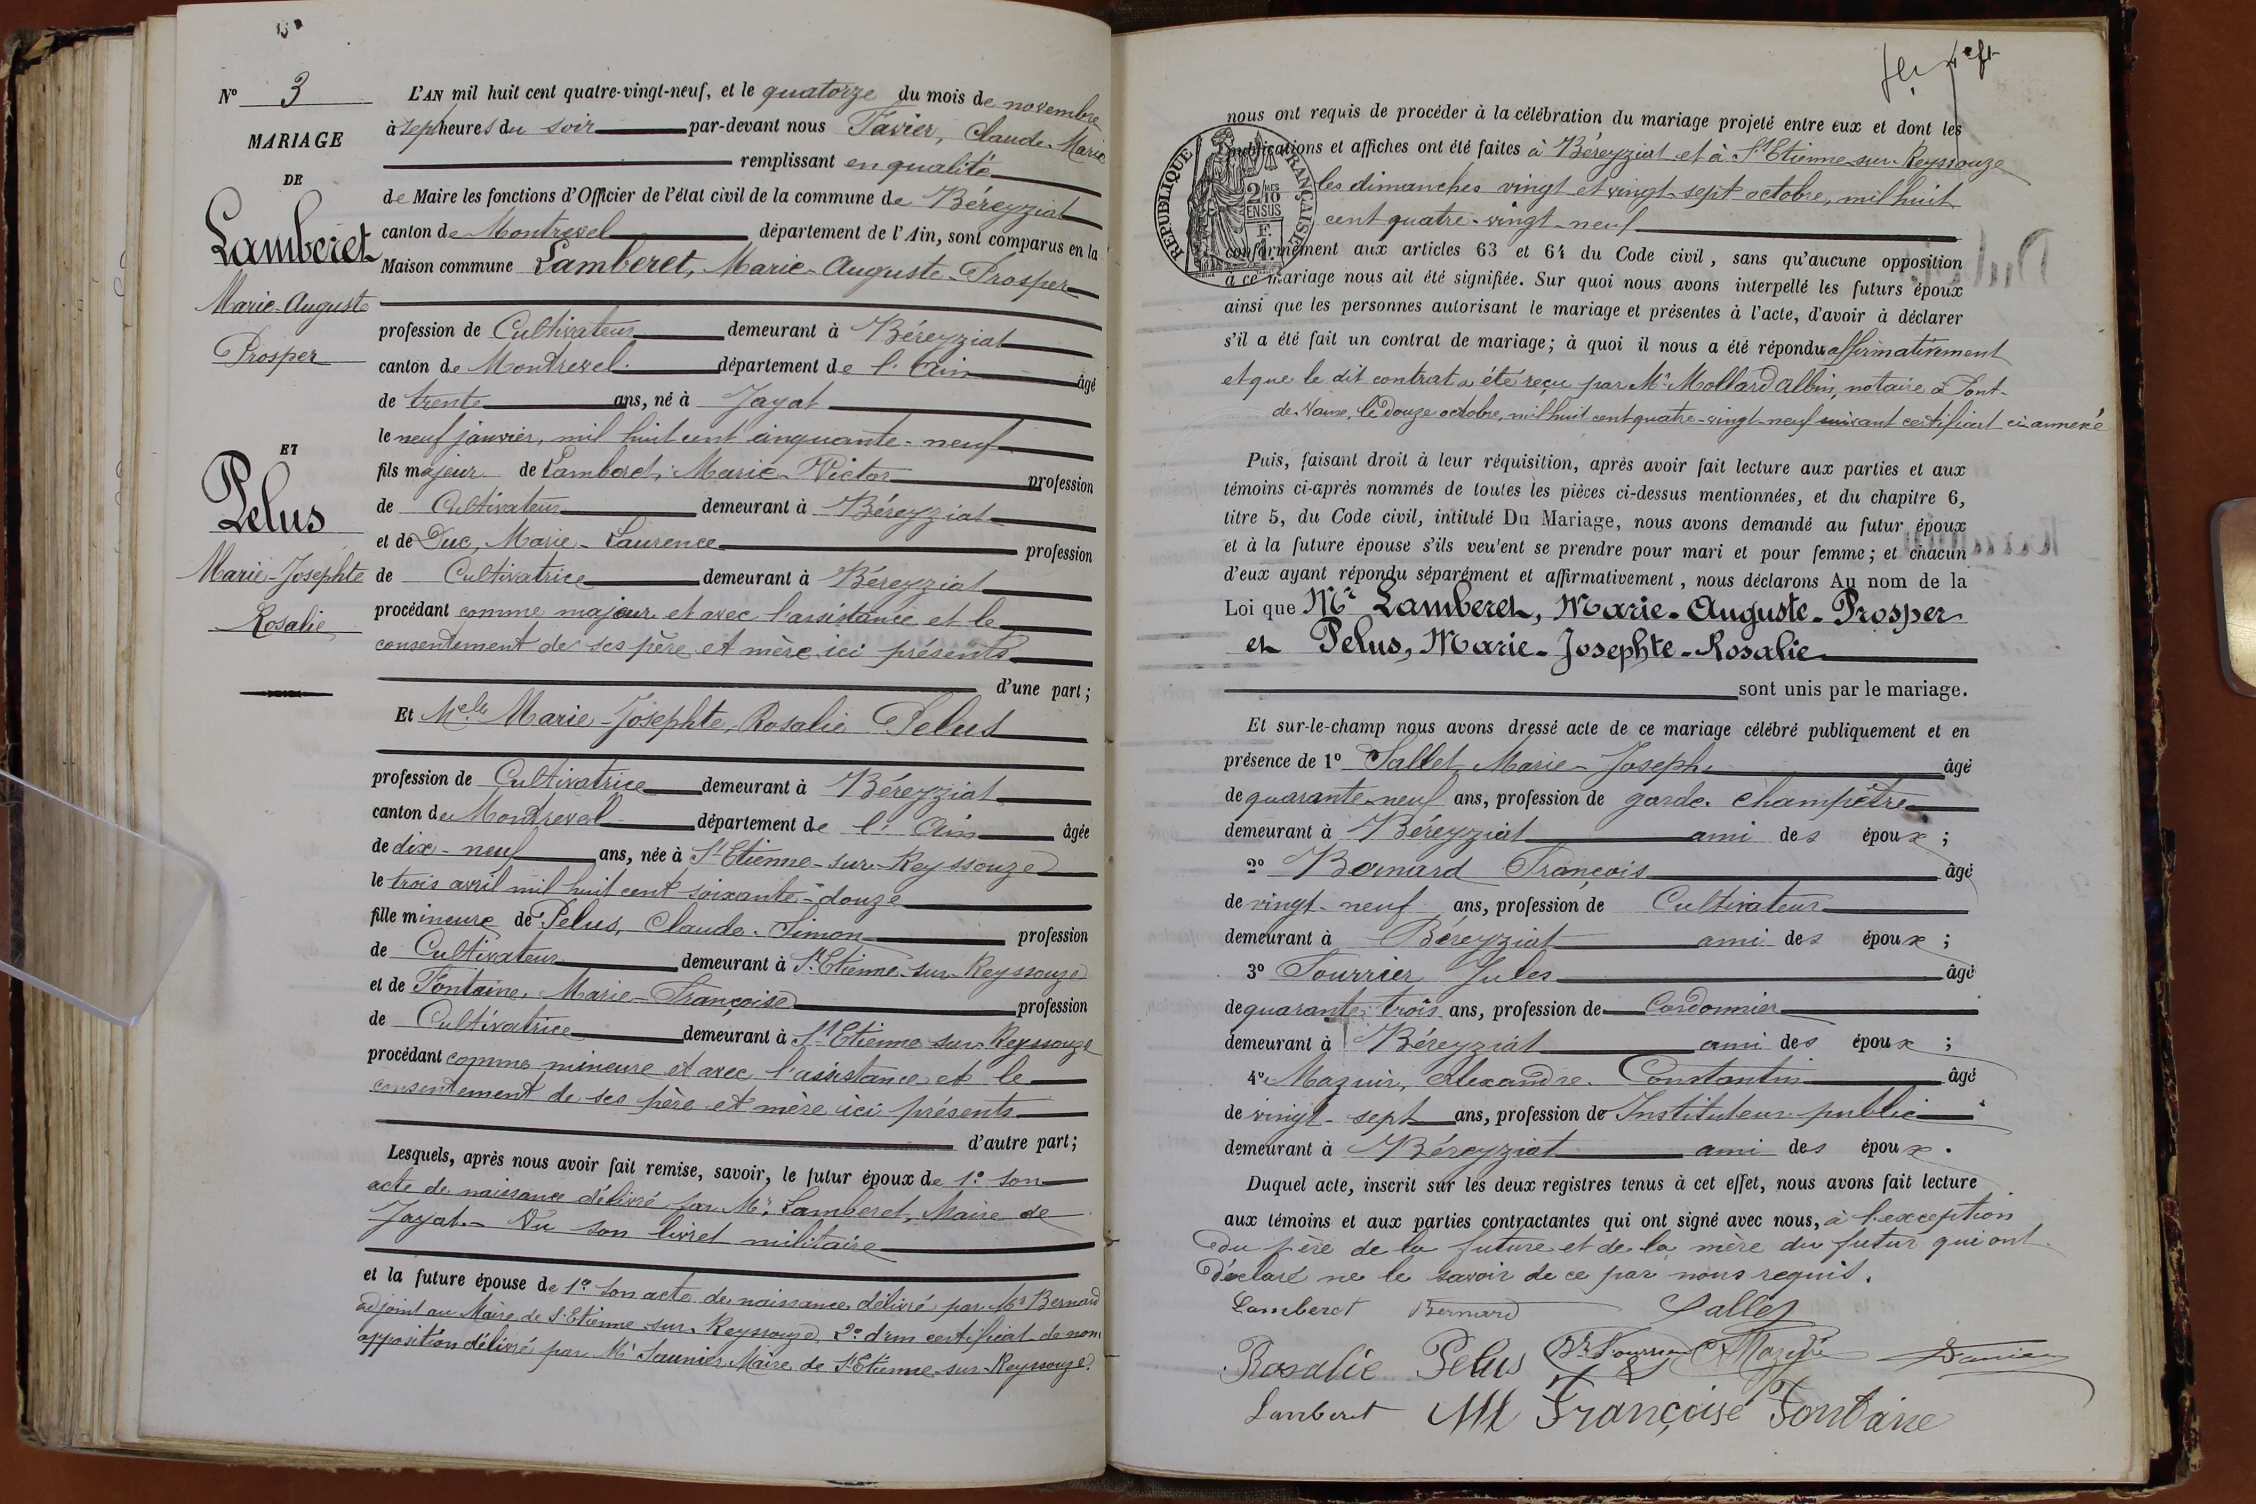 N° 3
MARIAGE
DE
Lamberet
Marie-Auguste
Prosper
ET
Pelus
Marie-Josephte
Rosalie
L'AN mil huit cent quatre-vingt-neuf, et le quatorze du mois de novembre
à sept heures du soir par-devant nous Favier, Claude-Marie
remplissant en qualité
de Maire les fonctions d'Officier de l'état civil de la commune de Béreyziat
canton de Montrevel département de l'Ain, sont comparus en la
Maison commune Lamberet, Marie-Auguste-Prosper
profession de Cultivateur demeurant à Béreyziat
canton de Montrevel département de l'Ain âgé
de trente ans, né à Jayat
le neuf janvier, mil huit cent cinquante-neuf
fils majeur de Lamberet, Marie-Victor profession
de Cultivateur demeurant à Béreyziat
et de Duc, Marie-Laurence profession
de Cultivatrice demeurant à Béreyziat
procédant comme majeur et avec l'assistance et le
consentement de ses père et mère ici présents
d'une part;
Et Melle Marie-Josephte, Rosalie Pelus
profession de Cultivatrice demeurant à Béreyziat
canton de Montrevel département de l'Ain âgée
de dix-neuf ans, née à St Etienne-sur-Reyssouze
le trois avril mil huit cent soixante-douze
fille mineure de Pelus, Claude-Simon profession
de Cultivateur demeurant à St Etienne-sur-Reyssouze
et de Fontaine, Marie-Françoise profession
de Cultivatrice demeurant à St Etienne-sur-Reyssouze
procédant comme mineure et avec l'assistance et le
consentement de ses père et mère ici présents
d'autre part;
Lesquels, après nous avoir fait remise, savoir, le futur époux de 1° son
acte de naissance délivré par Mr Lamberet, Maire de
Jayat - Vu son livret militaire
et la future épouse de 1° son acte de naissance délivré par Mr Bernard
adjoint au Maire de St Etienne-sur-Reyssouze, 2° d'un certificat de non
opposition délivré par Mr Saunier Maire de St Etienne-sur-Reyssouze.
nous ont requis de procéder à la célébration du mariage projeté entre eux et dont les
publications et affiches ont été faites à Béreyziat et à St Etienne-sur-Reyssouze
les dimanches vingt et vingt-sept octobre, mil huit
cent quatre-vingt-neuf
RÉPUBLIQUE FRANÇAISE
2/10 EN SUS
conformément aux articles 63 et 64 du Code civil, sans qu'aucune opposition
à ce mariage nous ait été signifiée. Sur quoi nous avons interpellé les futurs époux
ainsi que les personnes autorisant le mariage et présentes à l'acte, d'avoir à déclarer
s'il a été fait un contrat de mariage; à quoi il nous a été répondu affirmativement
et que le dit contrat a été reçu par Me Mollard Albin, notaire à Pont-
de-Vaux, le douze octobre, mil huit cent quatre-vingt-neuf suivant certificat ci-annexé
Puis, faisant droit à leur réquisition, après avoir fait lecture aux parties et aux
témoins ci-après nommés de toutes les pièces ci-dessus mentionnées, et du chapitre 6,
titre 5, du Code civil, intitulé Du Mariage, nous avons demandé au futur époux
et à la future épouse s'ils veulent se prendre pour mari et pour femme; et chacun
d'eux ayant répondu séparément et affirmativement, nous déclarons Au nom de la
Loi que Mr Lamberet, Marie-Auguste-Prosper
et Pelus, Marie-Josephte-Rosalie
sont unis par le mariage.
Et sur-le-champ nous avons dressé acte de ce mariage célébré publiquement et en
présence de 1° Sallet Marie-Joseph âgé
de quarante-neuf ans, profession de garde champêtre
demeurant à Béreyziat ami des époux;
2° Bernard François âgé
de vingt-neuf ans, profession de Cultivateur
demeurant à Béreyziat ami des époux;
3° Fourrier Jules âgé
de quarante-trois ans, profession de Cordonnier
demeurant à Béreyziat ami des époux;
4° Mazuir, Alexandre Constantin âgé
de vingt-sept ans, profession de Instituteur public
demeurant à Béreyziat ami des époux.
Duquel acte, inscrit sur les deux registres tenus à cet effet, nous avons fait lecture
aux témoins et aux parties contractantes qui ont signé avec nous, à l'exception
du père de la future et de la mère du futur qui ont
déclaré ne le savoir de ce par nous requis.
Lamberet Bernard Sallet
Rosalie Pelus
Lamberet Françoise Fontaine